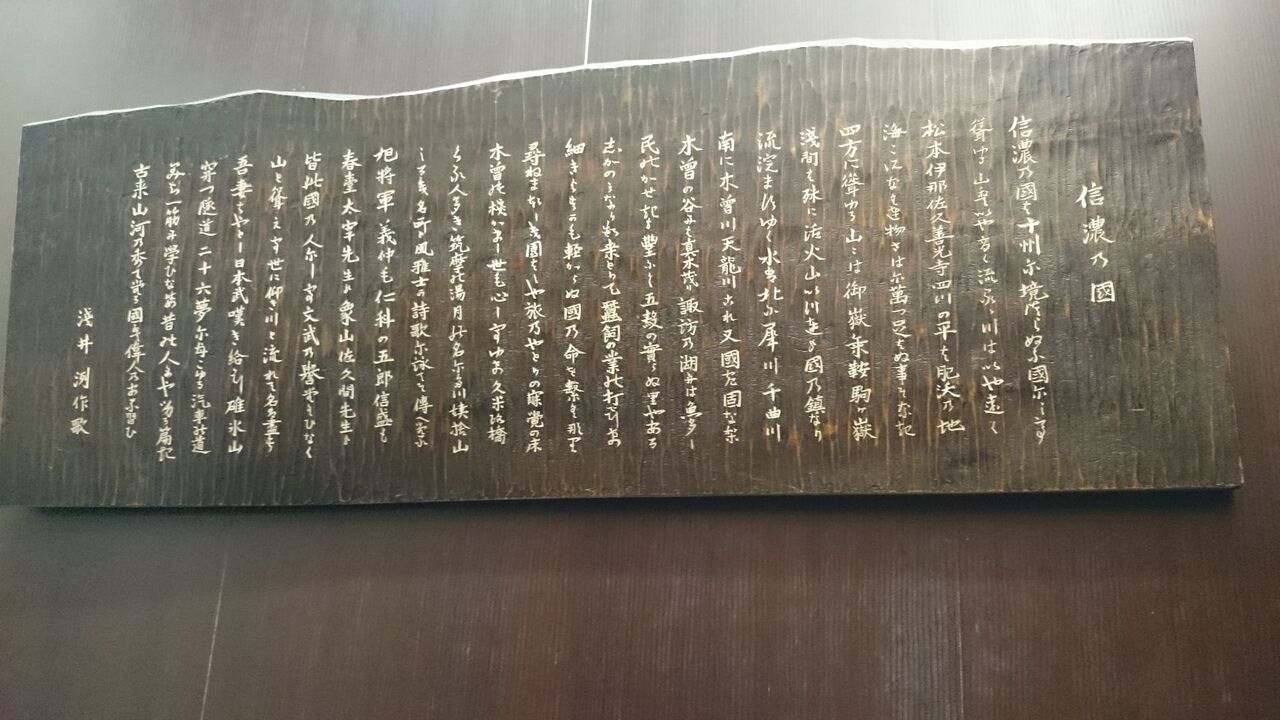 信濃乃國
信濃乃國は十州尓境連る國尓して
聳ゆる山はいや高く流るゝ川はいや遠し
松本伊那佐久善光寺四つの平は肥沃乃地
海こそなけれ物さは尓萬足らぬ事そなき
四方に聳ゆる山々は御嶽乗鞍駒ヶ嶽
淺間は殊に活火山いつれも國乃鎮なり
流淀ますゆく水は北に犀川千曲川
南に木曽川天龍川これ又國の固なり
木曽の谷には真木茂り諏訪乃湖には魚多し
民のかせきも豊にて五穀の實らぬ里やある
しかのみならす桑とりて蠶飼の業の打ひらけ
細きよすかも軽からぬ國乃命を繋くなり
尋ねまほしき園原や旅乃やとりの寐覚の床
木曽の棧かけし世も心してゆけ久米路橋
くる人多き筑摩の湯月の名にたつ姨捨山
しるき名所と風雅士の詩歌に詠てそ傳へたる
旭将軍義仲も仁科の五郎信盛も
春臺太宰先生も象山佐久間先生も
皆此國乃人にして文武乃誉たくひなく
山と聳えて世に仰き川と流れて名は盡す
吾妻はやとし日本武嘆き給ひし碓氷山
穿つ隧道二十六夢にもこゆる汽車の道
みち一筋に學ひなは昔の人にや劣るへき
古来山河乃秀てたる國は偉人のある習ひ
淺井洌作歌